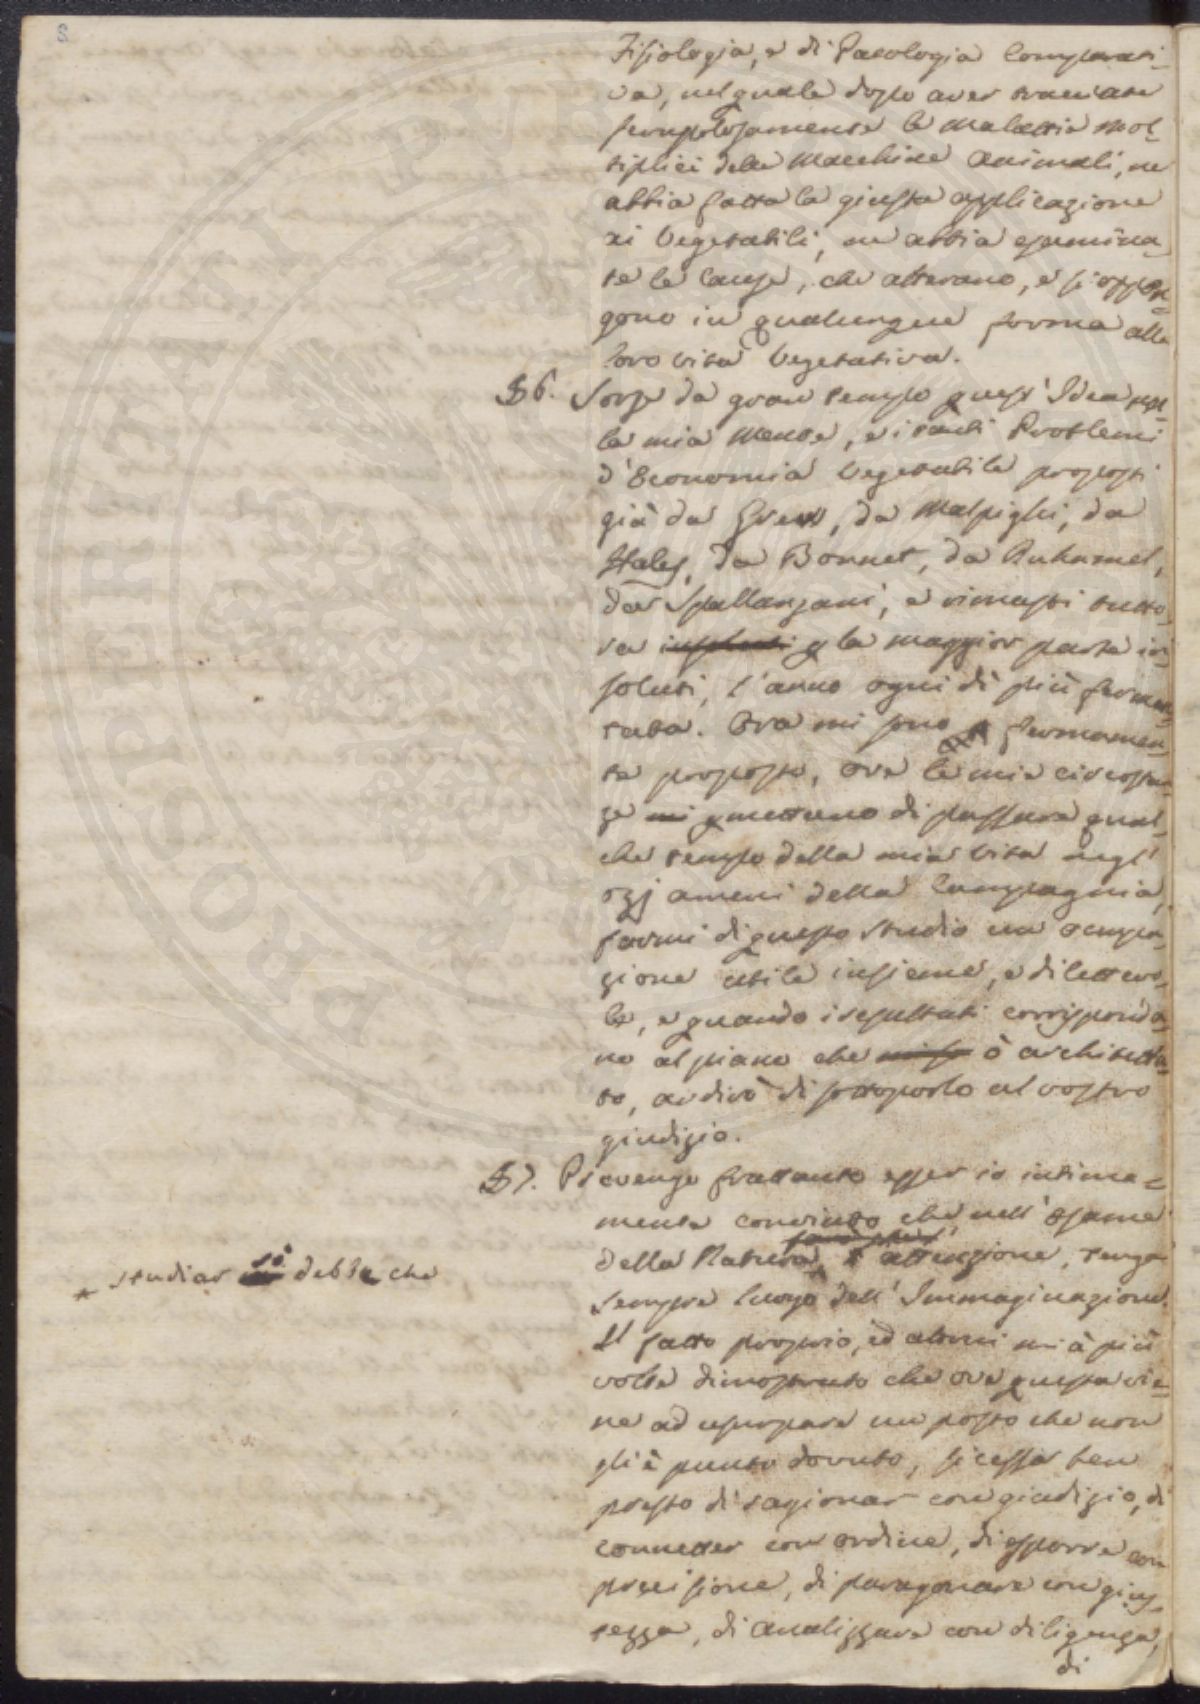 8
Fisiologia, e di Patologia Comparati-
va, nel quale dopo aver tracciate
scrupolosamente le Malattie mol-
tiplici delle Macchine Animali, ne
abbia fatta la giusta applicazione
ai Vegetabili, ne abbia esamina-
te le Cause, che alterano, e si oppon-
gono in qualunque forma alla
loro vita Vegetativa.
§ 6. Sorse da gran tempo quest' Idea nel-
la mia Mente, e i tanti Problemi
d'Economia Vegetabile proposti
già da Grew, da Malpighi, da
Hales, da Bonnet, da Duhamel,
da Spallanzani, e rimasti tutto-
ra insoluti p la maggior parte in-
soluti, l'anno ogni dì più fermen-
tata. Ora mi sono fermamen-
te proposto, ove le mie circostan-
ze mi pmettano di passare qual-
che tempo della mia vita negl'
ozj ameni della Campagnia,
farmi di questo studio una occupa-
zione utile insieme, e dilettevo-
le, e quando i resultati corrisponda-
no al piano che ò architetta-
to, ardirò di sottoporlo al vostro
giudizio.
§ 7. Prevengo frattanto esser io intima-
mente convinto che nell' Esame
della Natura, l' attenzione, tenga
sempre luogo dell' Immaginazione.
Il fatto proprio, ed altrui mi à più
volte dimostrato che ove questa vie-
ne ad usurpare un posto che non
gli è punto dovuto, si cessa ben
presto di ragionar con giudizio, di
connetter con ordine, di esporre con
precisione, di paragonare con gius-
tezza, di analizzare con diligenza,
di
* studiar si debba che
PROSPERITATI PUB